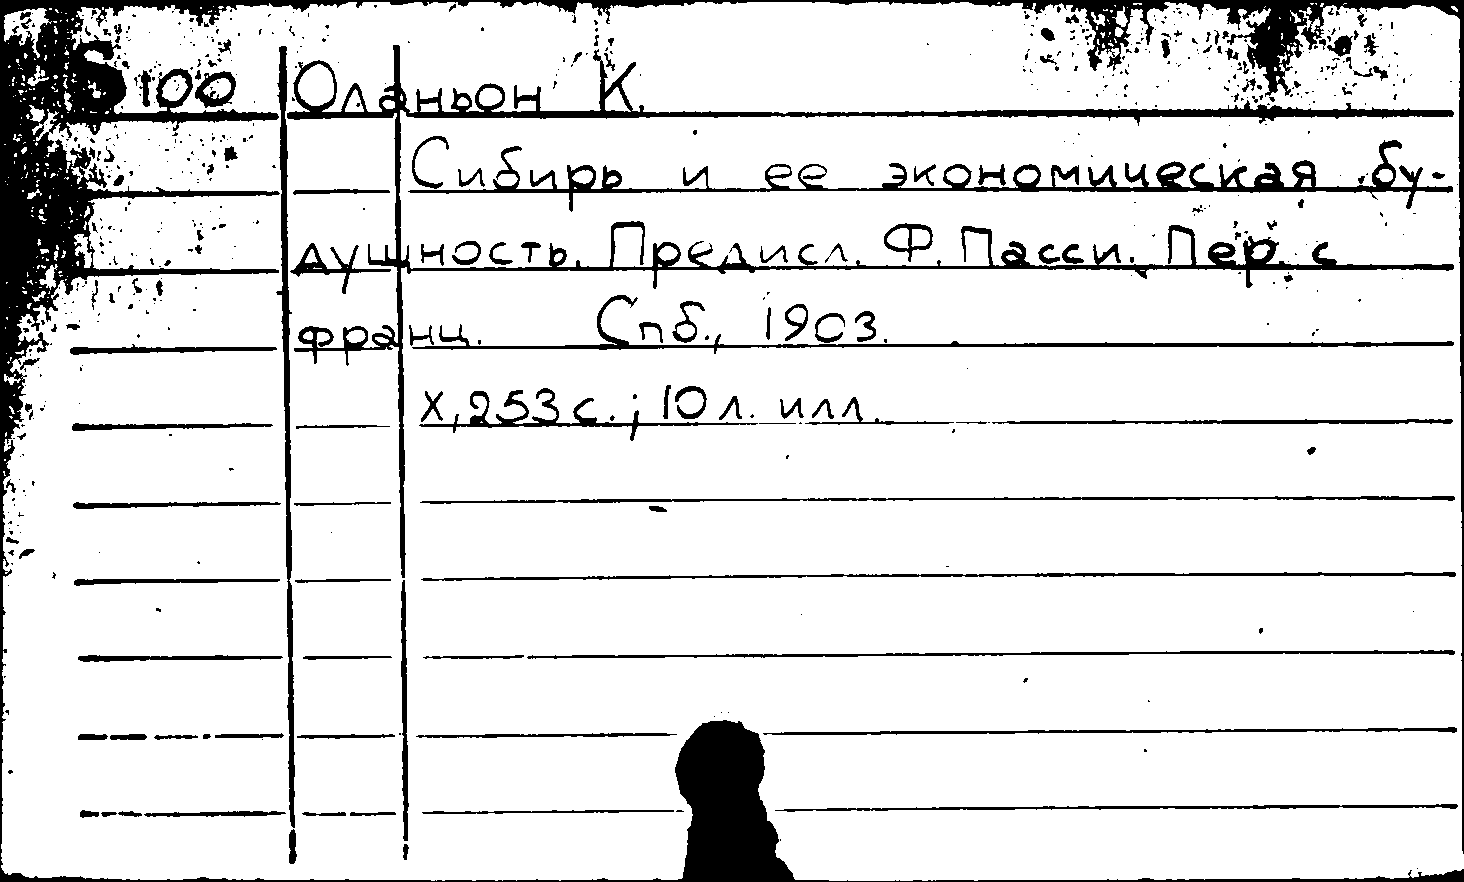 S100 Оланьон К.
Сибирь и ее экономическая бу-
дущность. Предисл. Ф. Пасси. Пер. с
франц. Спб., 1903.
X, 253 с.; 10 л. илл.